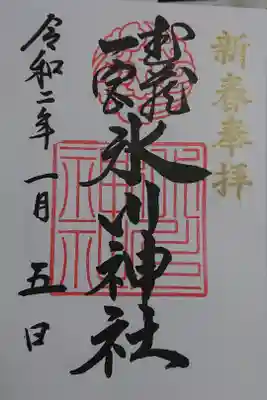 新春奉拝
武蔵
一宮
氷川神社
令和二年一月五日